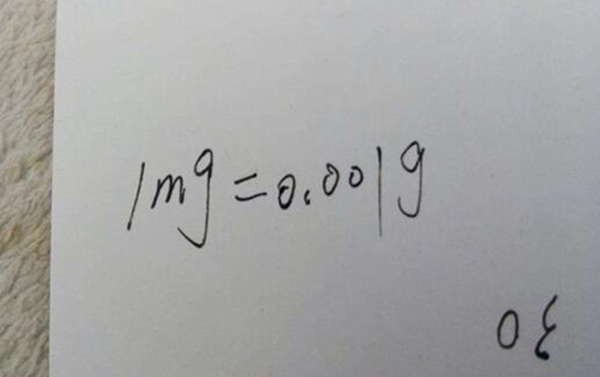 1mg=0.001g
30